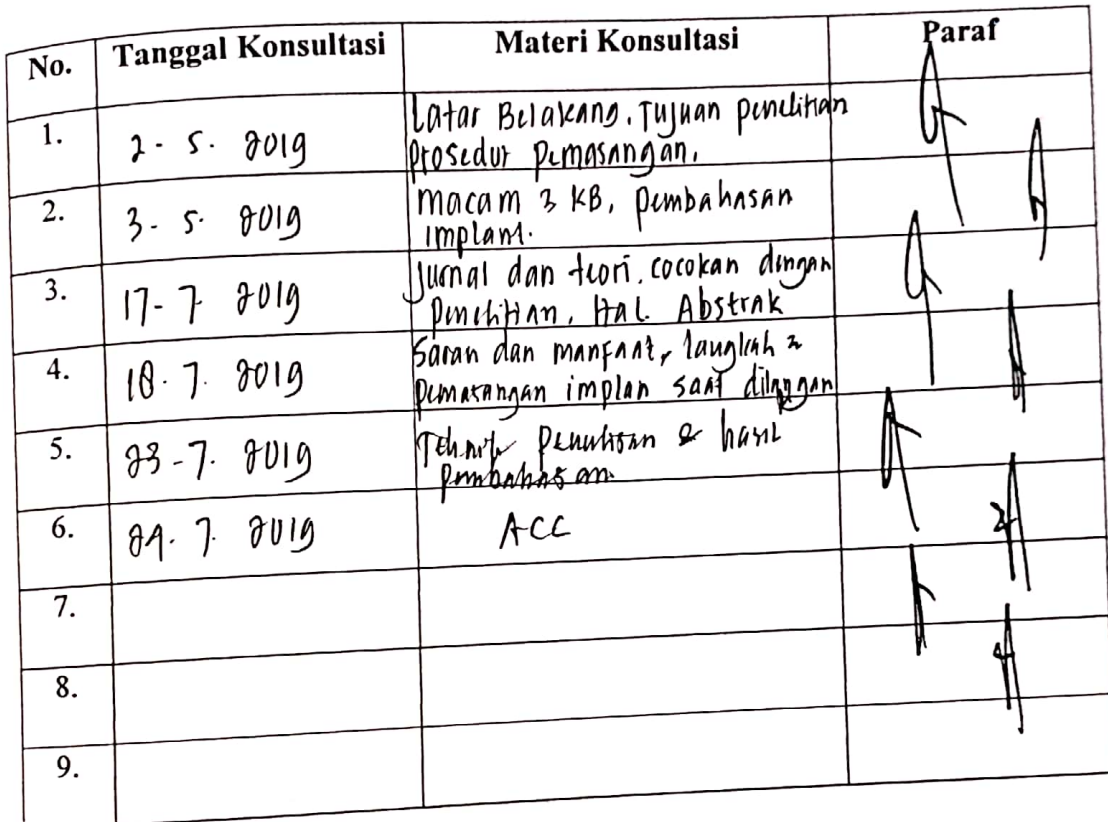 No. Tanggal Konsultasi Materi Konsultasi Paraf
1. 2 - 5 - 2019 Latar Belakang, Tujuan penelitian
prosedur pemasangan.
2. 3 - 5 - 2019 macam 2 KB, pembahasan
implant.
3. 17 - 7 2019 Jurnal dan teori, cocokan dengan
penelitian, Hal. Abstrak
4. 18 . 7. 2019 Saran dan manfaat, langkah 2
pemasangan implan saat dilapangan
5. 23 - 7. 2019 Teknik penulisan & hasil
pembahasan.
6. 7. 2019 ACC
7.
8.
9.